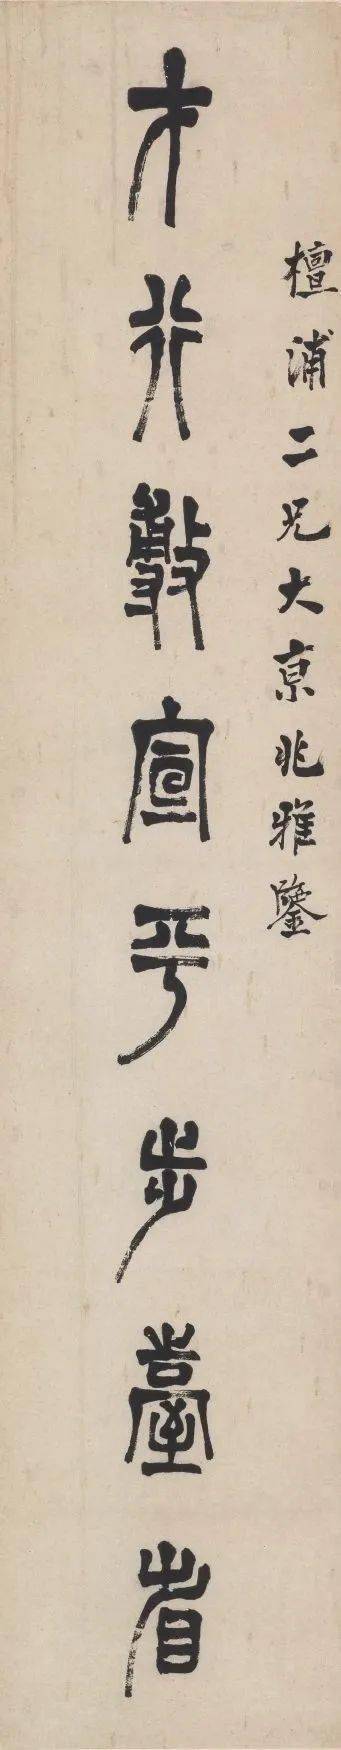 檀浦二兄大京兆雅鑒
才行敷宣平步臺省